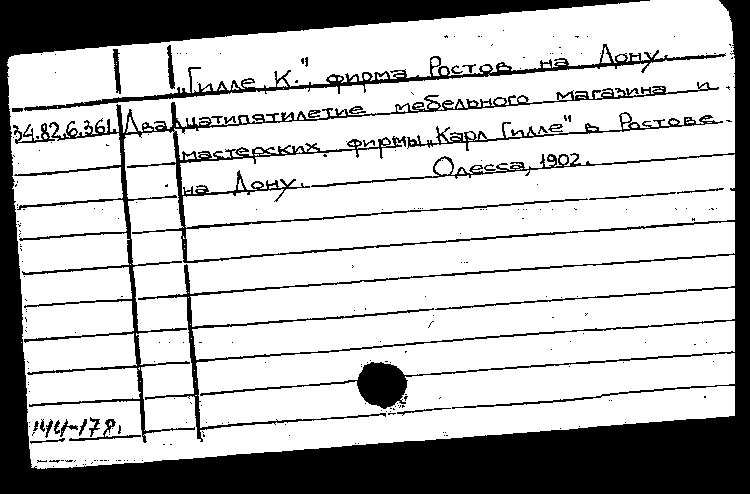 „Гилле, К.", фирма. Ростов на Дону.
34.82.6.361. Двадцатипятилетие мебельного магазина и
мастерских фирмы „Карл Гилле" в Ростове
на Дону. Одесса, 1902.
144-178.